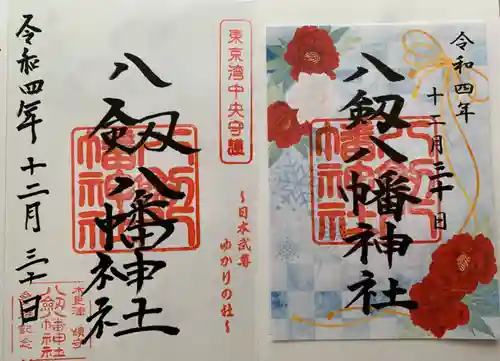 東京湾中央守護
八劔八幡神社
令和四年十二月三十日
〜日本武尊
ゆかりの社〜
木更津 鎮守
八劔幡神社
令和四年
八劔八幡神社
十二月三十日